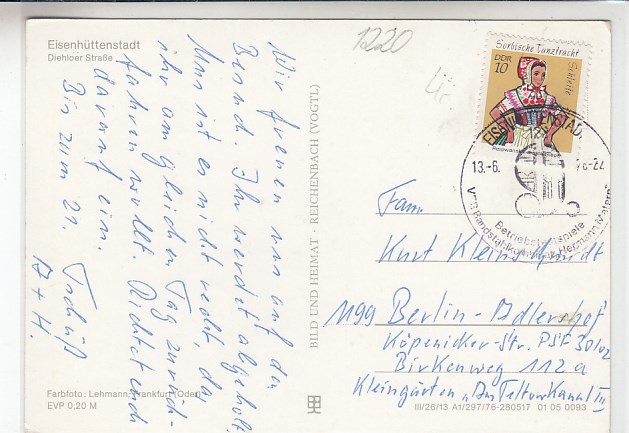 Eisenhüttenstadt
Diehloer Straße
Wir freuen uns auf den
Besuch. Ihr werdet abgeholt.
Uns ist es nicht recht, daß
ihr am gleichen Tag zurück-
fahren wollt. Richtet euch
darauf ein.
Bis zum 21.
Tschüß
A + H.
Farbfoto: Lehmann, Frankfurt (Oder)
EVP 0,20 M
BILD UND HEIMAT · REICHENBACH (VOGTL)
1220
Sorbische Tanztracht
DDR
10
Schleife
EISENHÜTTENSTADT
13.-6.
Betriebsfestspiele
VEB Bandstahlkombinat "Hermann Matern"
Fam.
Kurt Kleinschmidt
1199 Berlin-Adlershof
Köpenicker-Str. PSF 30/02
Birkenweg 112a
Kleingärten "Am Teltowkanal III"
III/26/13 A1/297/76-260517 01 05 0093